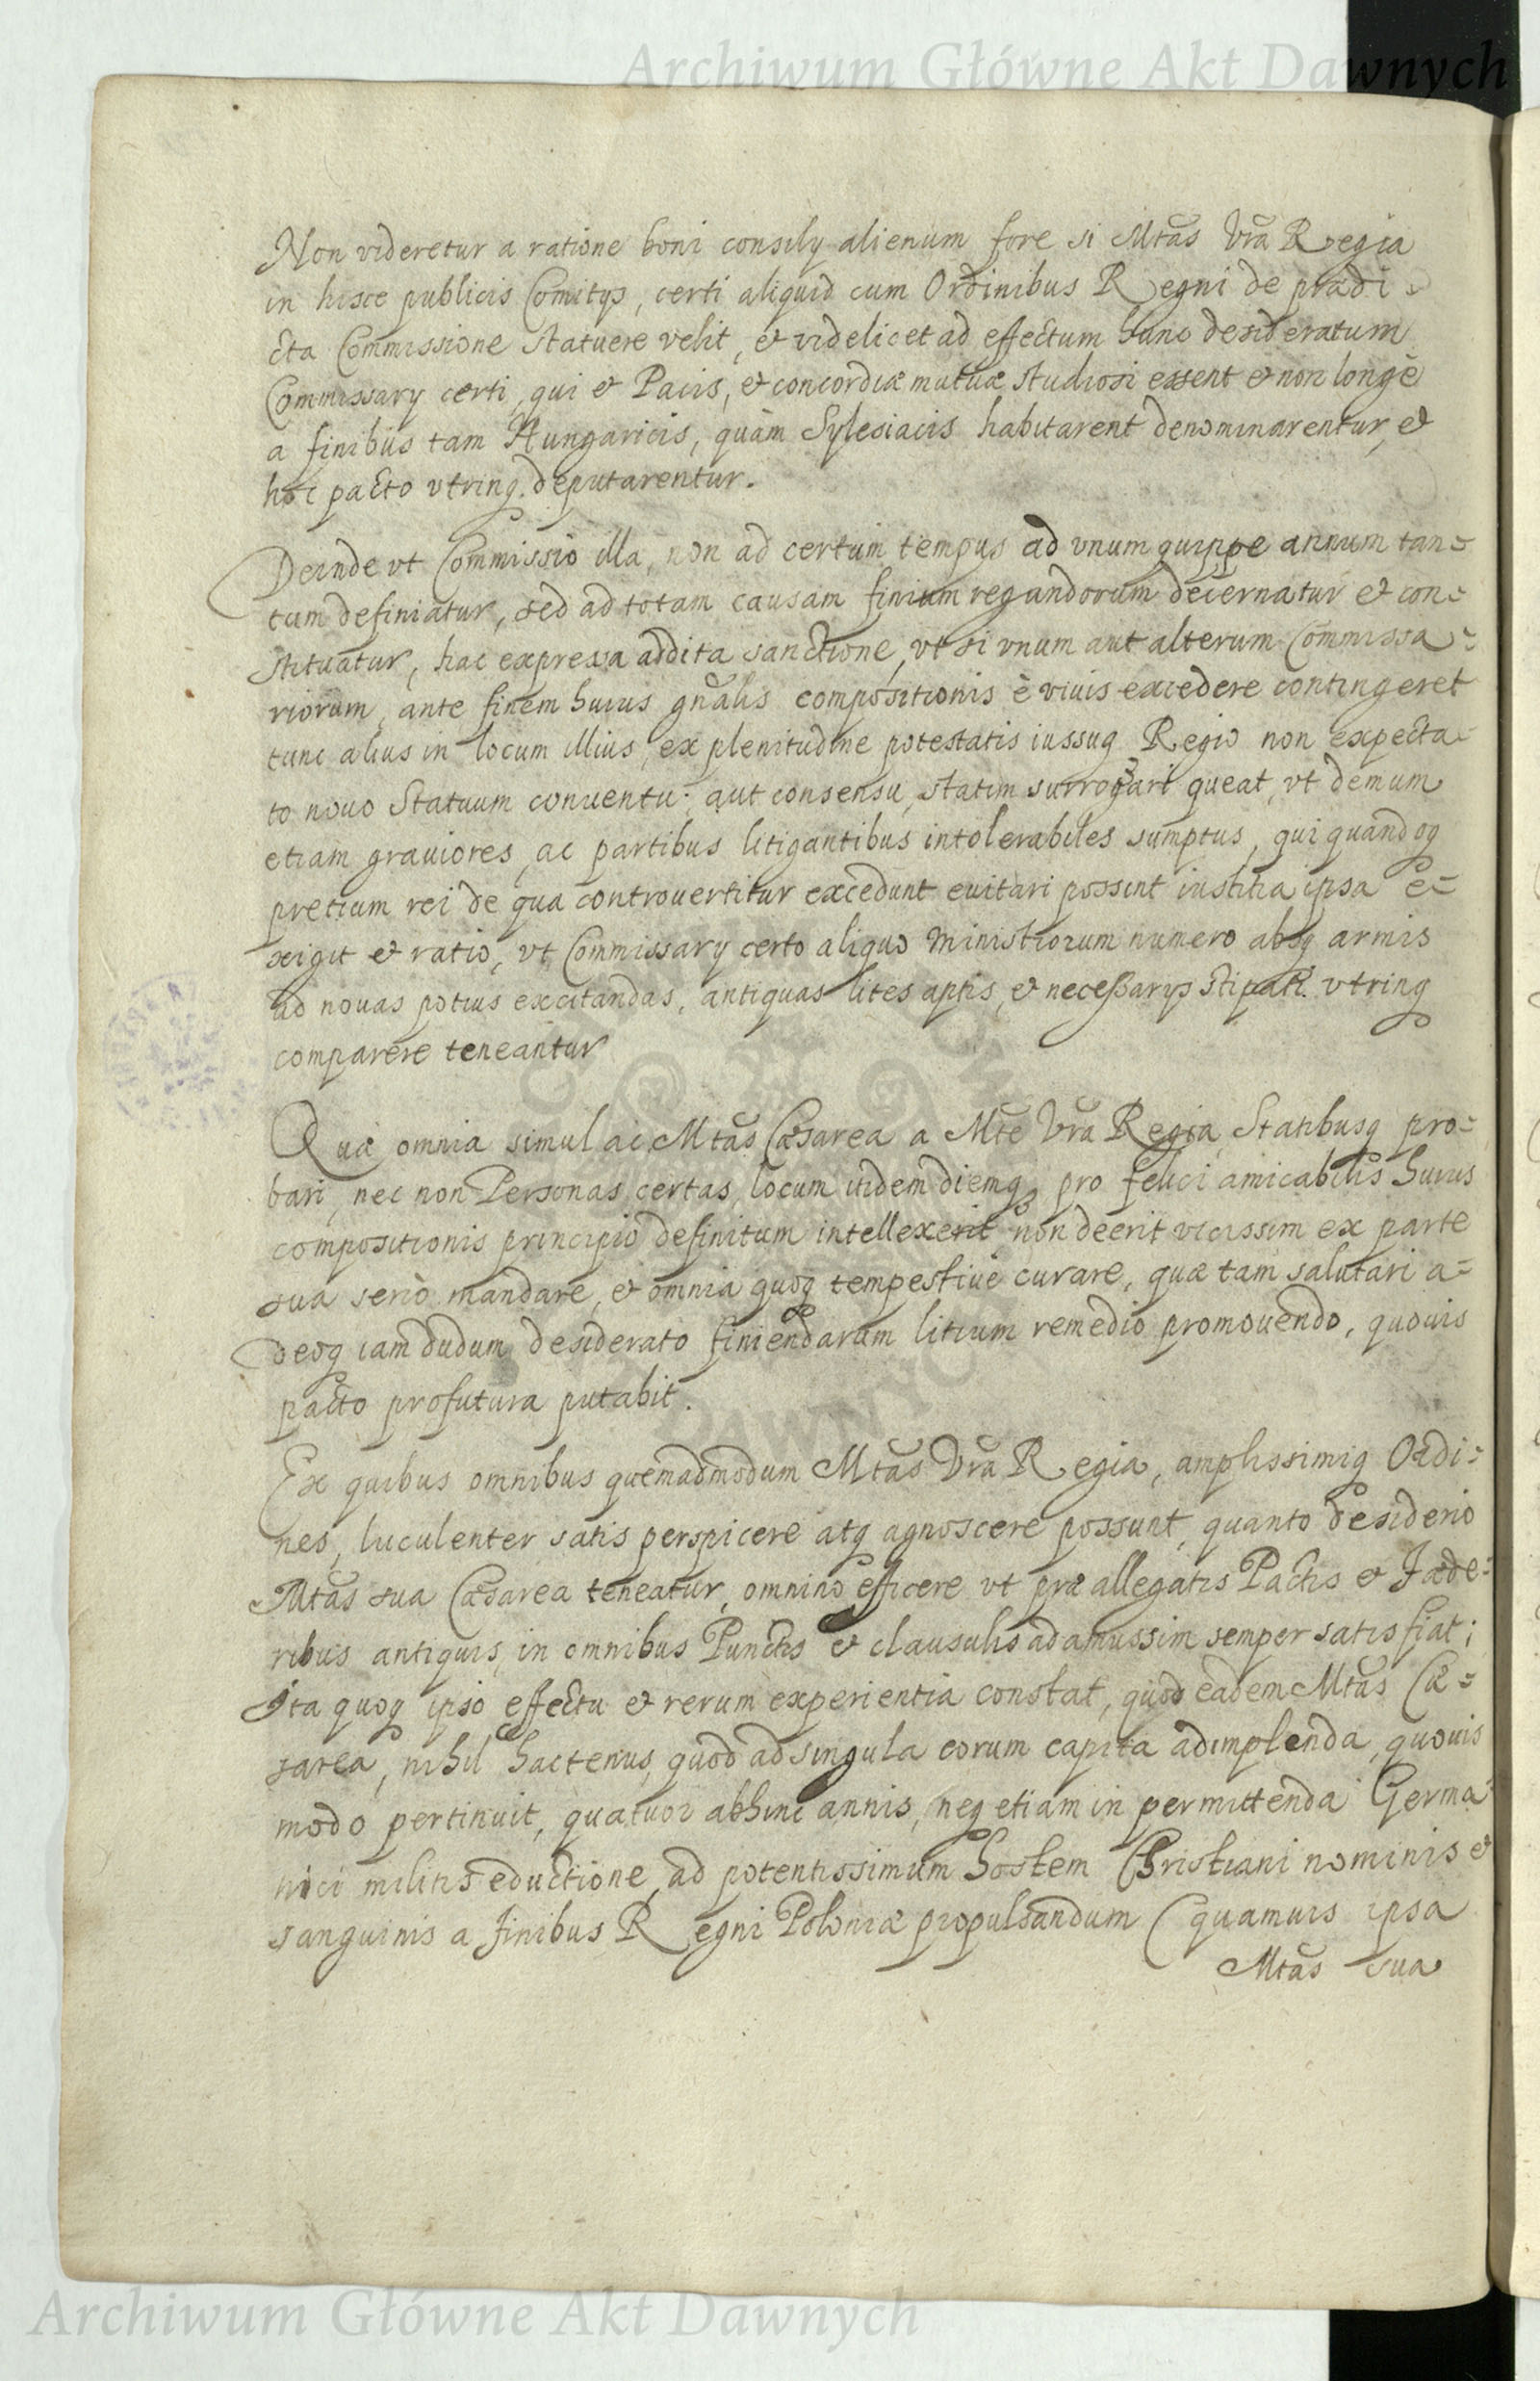 Archiwum Główne Akt Dawnych
Non videretur a ratione boni consily alienum fore si Mtas Vra Regia
in hisce publicis Comitys, certi aliquid cum Ordinibus Regni de prædi-
cta Commissione statuere velit, et videlicet ad effectum hunc desideratum
Commissary certi, qui et Pacis, et concordiæ mutuæ studiosi essent et non longè
a finibus tam Hungaricis, quàm Sylesiacis habitarent denominarentur, et
hoc pacto vtrinq. deputarentur.
Deinde vt Commissio illa, non ad certum tempus ad vnum quippe annum tan=
tum definiatur, sed ad totam causam finium regundorum decernatur et con=
stituatur, hac expressa addita sanctione, vt si vnum aut alterum Commissa=
riorum, ante finem huius gnalis compositionis è viuis excedere contingeret
tunc alius in locum illius, ex plenitudine potestatis iussuq Regio non expecta=
to nouo Statuum conuentu, aut consensu, statim surrogari queat, vt demum
etiam grauiores, ac partibus litigantibus intolerabiles sumptus, qui quandoq
pretium rei de qua controuertitur excedunt euitari possint iustitia ipsa e=
xigit et ratio, vt Commissary certo aliquo Ministrorum numero absq armis
ad nouas potius excitandas, antiquas lites aptis, et necessarys stipati vtrinq
comparere teneantur
Quæ omnia simul ac Mtas Cæsarea a Mte Vra Regia, Statibusq pro=
bari, nec non Personas certas, locum itidem diemq, pro felici amicabilis huius
compositionis principio definitum intellexerit non deerit vicissim ex parte
sua seriò mandare, et omnia quoq tempestiuè curare, quæ tam salutari a=
deoq iam dudum desiderato finiendarum litium remedio promouendo, quouis
pacto profutura putabit.
Ex quibus omnibus quemadmodum Mtas Vra Regia, amplissimiq Ordi=
nes, luculenter satis perspicere atq agnoscere possunt, quanto desiderio
Mtas sua Cæsarea teneatur, omnino efficere vt præallegatis Pactis et Fæde=
ribus antiquis, in omnibus Punctis et clausulis adamussim semper satis fiat;
Ita quoq ipso effectu et rerum experientia constat, quod eadem Mtas Cæ=
sarea, nihil hactenus, quod ad singula eorum capita adimplenda, quouis
modo pertinuit, quatuor abhinc annis, neq etiam in permittenda Germa
nici militis eductione, ad potentissimum hostem Christiani nominis et
sanguinis a finibus Regni Poloniæ propulsandum (quamuis ipsa
Mtas sua
Archiwum Główne Akt Dawnych